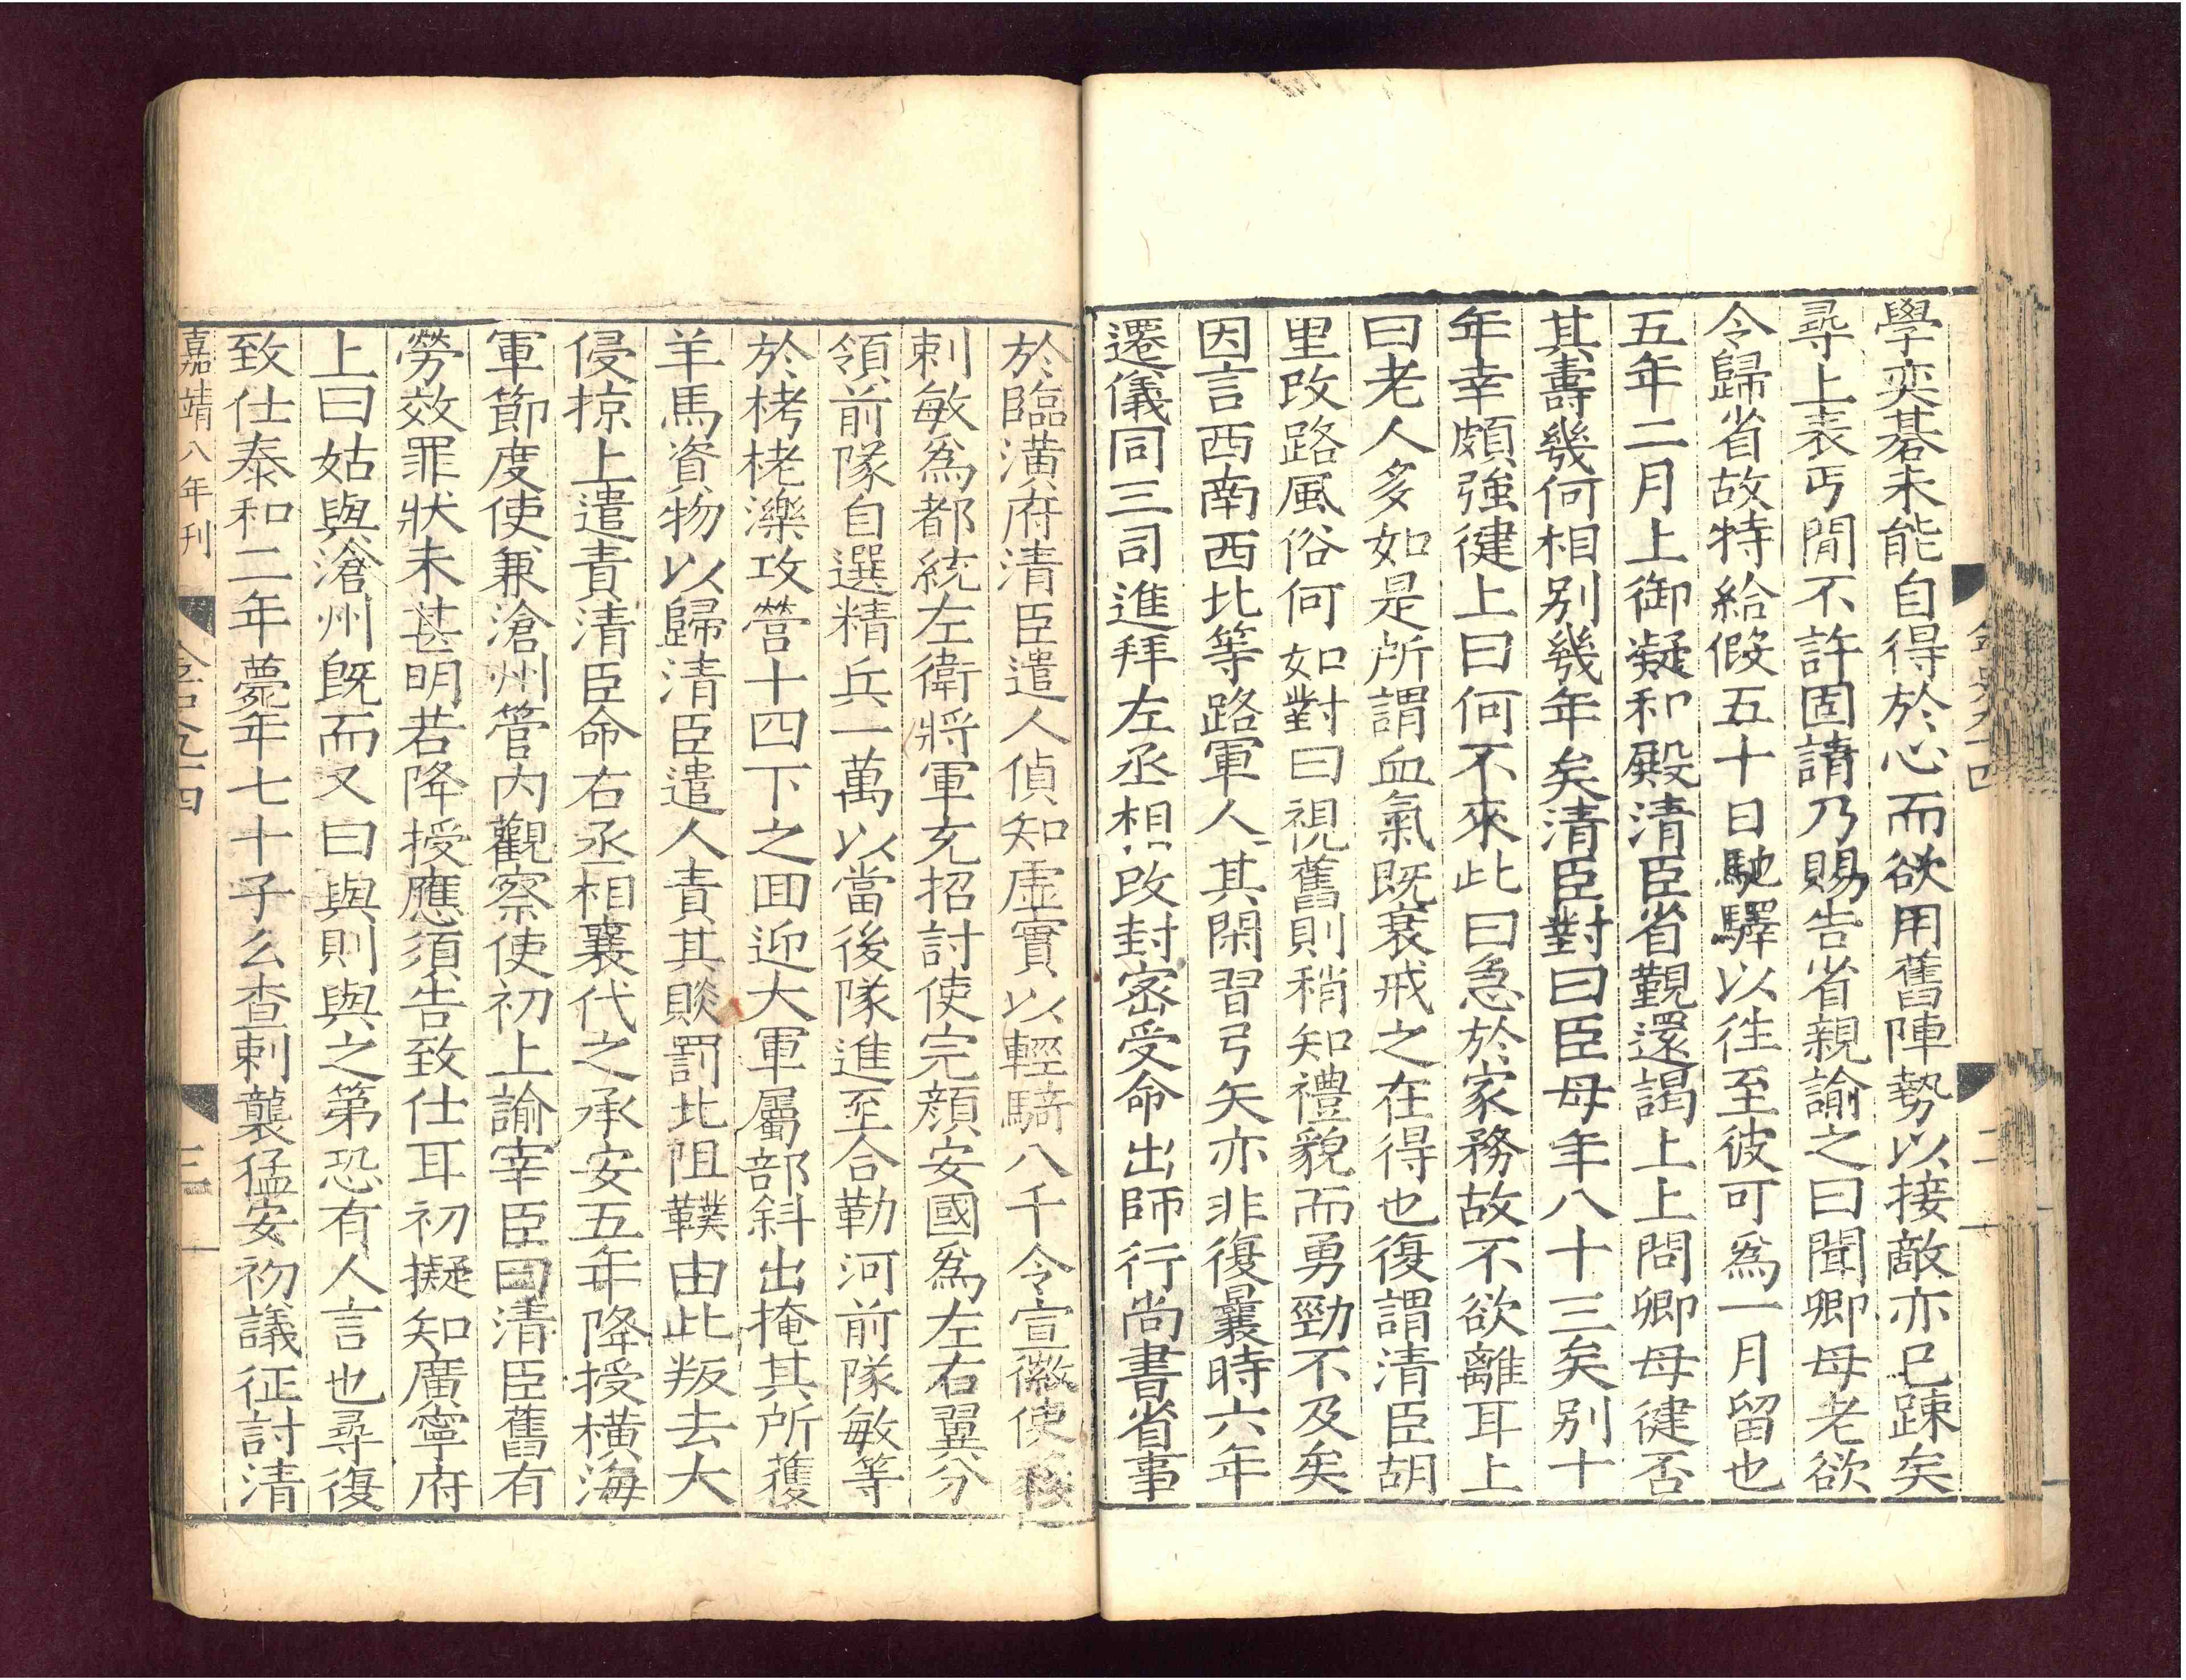 學奕碁未能自得於心而欲用舊陣勢以接敵亦已踈矣
尋上表丐閒不許固請乃賜告省親諭之曰聞卿母老欲
令歸省故特給假五十日馳驛以往至彼可爲一月留也
五年二月上御凝和殿清臣省覲還謁上上問卿母健否
其壽幾何相別幾年矣清臣對曰臣母年八十三矣別十
年幸頗強健上曰何不來此曰急於家務故不欲離耳上
曰老人多如是所謂血氣既衰戒之在得也復謂清臣胡
里改路風俗何如對曰視舊則稍知禮貌而勇勁不及矣
因言西南西北等路軍人其閑習弓矢亦非復曩時六年
遷儀同三司進拜左丞相改封密受命出師行尚書省事
金史九十四
二
於臨潢府清臣遣人偵知虛實以輕騎八千令宣徽使移
剌敏爲都統左衛將軍充招討使完顏安國爲左右翼分
領前隊自選精兵一萬以當後隊進至合勒河前隊敏等
於栲栳濼攻營十四下之回迎大軍屬部斜出掩其所獲
羊馬資物以歸清臣遣人責其賧罰北阻䪁由此叛去大
侵掠上遣責清臣命右丞相襄代之承安五年降授橫海
軍節度使兼滄州管內觀察使初上諭宰臣曰清臣舊有
勞效罪狀未甚明若降授應須告致仕耳初擬知廣寧府
上曰姑與滄州旣而又曰與則與之第恐有人言也尋復
致仕泰和二年薨年七十子么查剌襲猛安初議征討清
嘉靖八年刊
金史九十四
三